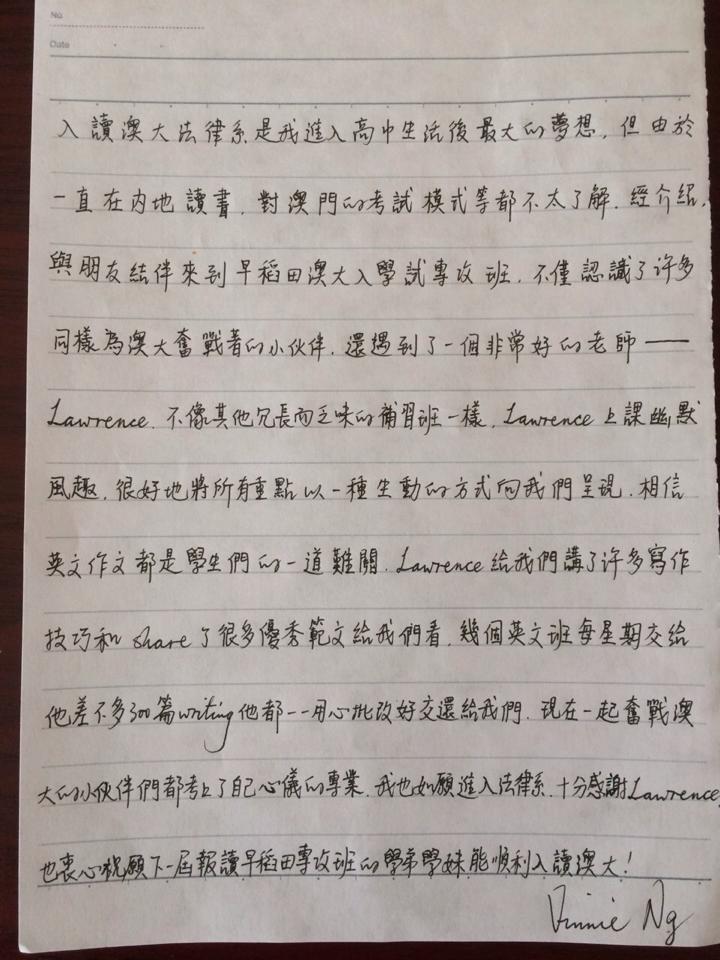 No.
Date
入讀澳大法律系是我進入高中生活後最大的夢想，但由於
一直在内地讀書，對澳門的考試模式等都不太了解．經介紹，
與朋友結伴來到早稻田澳大入學試專攻班，不僅認識了许多
同樣為澳大奮戰著的小伙伴，還遇到了一個非常好的老師——
Lawrence．不像其他冗長而乏味的補習班一樣，Lawrence上課幽默
風趣，很好地將所有重點以一種生動的方式向我們呈現．相信
英文作文都是學生們的一道難關，Lawrence給我們講了许多寫作
技巧和share了很多優秀範文給我們看，幾個英文班每星期交給
他差不多300篇writing他都一一用心批改好交還給我們．現在一起奮戰澳
大的小伙伴們都考上了自己心儀的專業，我也如願進入法律系，十分感謝Lawrence，
也衷心祝願下一屆報讀早稻田專攻班的學弟學妹能順利入讀澳大！
Vinnie Ng